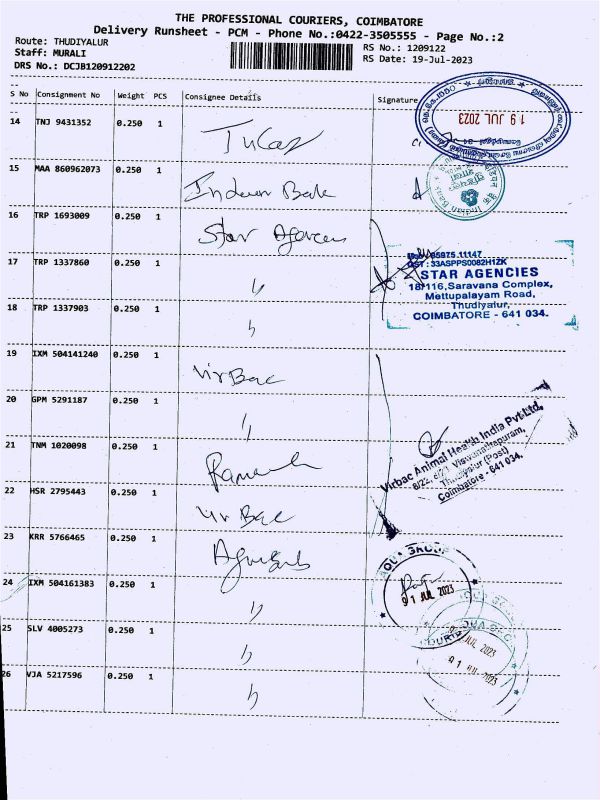 THE PROFESSIONAL COURIERS, COIMBATORE
Delivery Runsheet - PCM - Phone No.:0422-3505555 - Page No.:2
Route: THUDIYALUR
Staff: MURALI
DRS No.: DCJB120912202
RS No.: 1209122
RS Date: 19-Jul-2023
S No Consignment No Weight PCS Consignee Details Signature
14 TNJ 9431352 0.250 1
19 JUL 2023
15 MAA 860962073 0.250 1 Indian Bank
Indian Bank
16 TRP 1693009 0.250 1 Star Agencies
17 TRP 1337860 0.250 1 "
95975 11147
GST : 33ASPPS0082H1ZK
STAR AGENCIES
18/116,Saravana Complex,
Mettupalayam Road,
Thudiyalur,
COIMBATORE - 641 034.
18 TRP 1337903 0.250 1 "
19 IXM 504141240 0.250 1 Virbac
20 GPM 5291187 0.250 1 "
Virbac Animal Health India Pvt.Ltd.
Viswanathapuram,
Thudiyalur (Post)
Coimbatore - 641 034.
21 TNM 1020098 0.250 1
22 HSR 2795443 0.250 1 Virbac
23 KRR 5766465 0.250 1
24 IXM 504161383 0.250 1 "
25 SLV 4005273 0.250 1 "
26 VJA 5217596 0.250 1 "